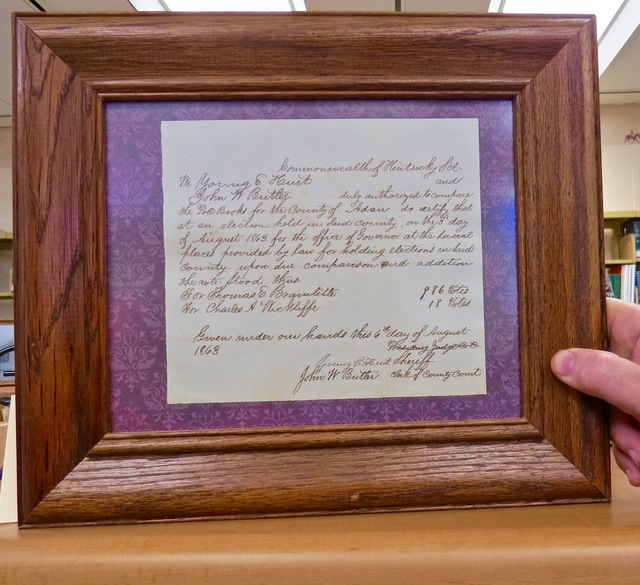 Commonwealth of Kentucky Sct.
We Young E Hurt and
John W Butler duly authorized to compare
the Poll Books for the County of Adair do certify that
at an election held in said county, on the 3d day
of August 1863 for the office of Governor at the several
places provided by law for holding elections in said
County, upon due comparison and addition
the vote stood thus.
For Thomas E Bramlitte 986 Votes
For Charles A Wickliffe 18 Votes
Given under our hands this 6th day of August
1863
Young E Hurt Sheriff
John W Butler Clerk of County Court